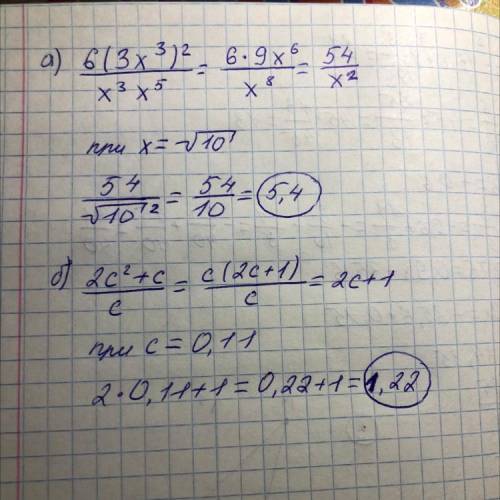 а) 6(3x³)² / x³ x⁵ = 6·9x⁶ / x⁸ = 54 / x²
при x = √10
54 / √10² = 54 / 10 = 5,4
б) 2c²+c / c = c(2c+1) / c = 2c+1
при c = 0,11
2·0,11+1 = 0,22+1 = 1,22